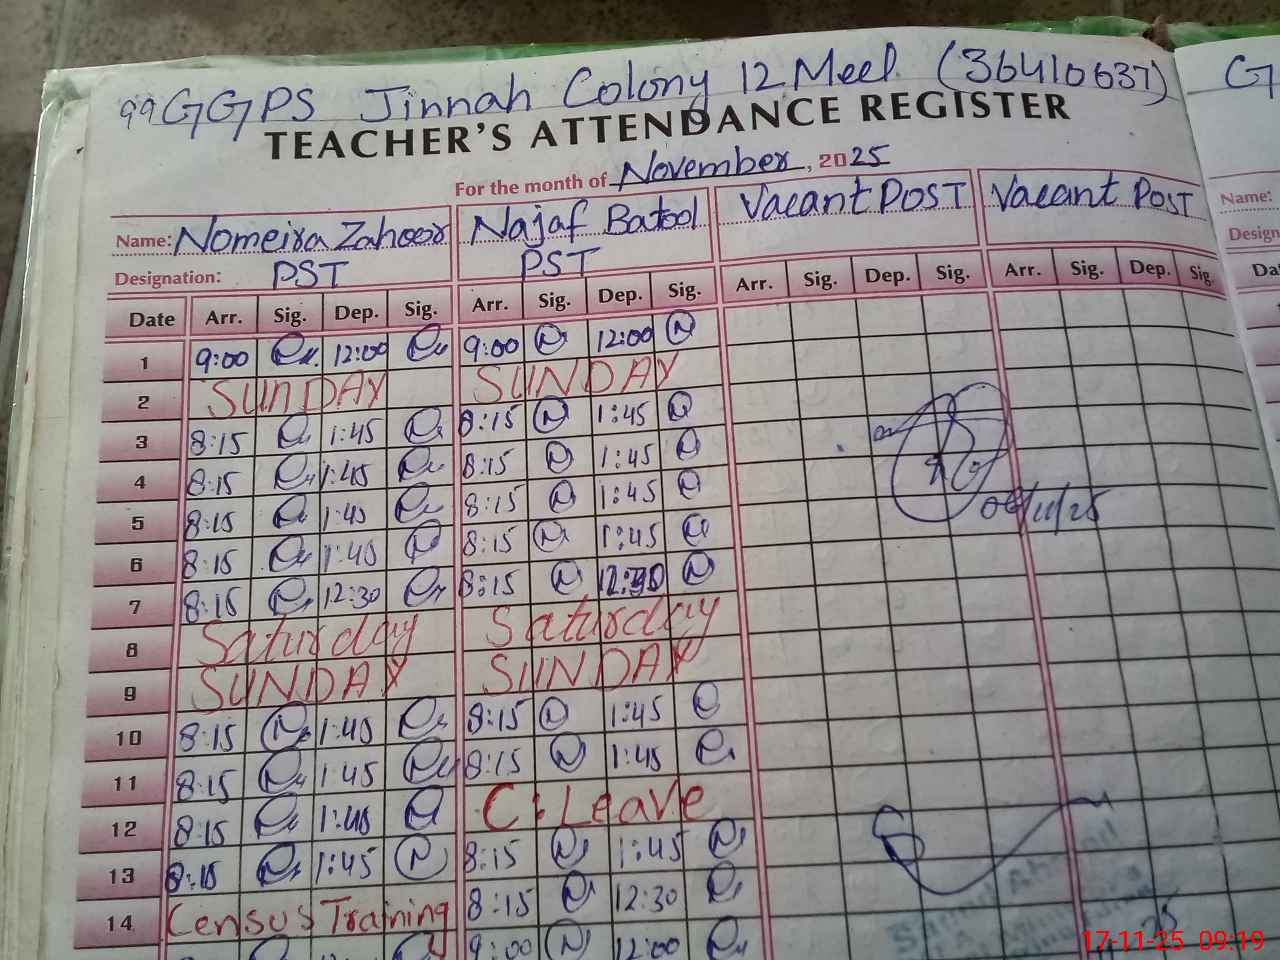 GGPS Jinnah Colony 12 Meel (36410637)
TEACHER'S ATTENDANCE REGISTER
For the month of November, 2025
Name: Nomeira Zahoor Najaf Batool Vacant POST Vacant POST
Designation: PST PST
Date Arr. Sig. Dep. Sig. Arr. Sig. Dep. Sig. Arr. Sig. Dep. Sig. Arr. Sig. Dep. Sig.
1 9:00 12:00 9:00 12:00
2 SUNDAY SUNDAY
3 8:15 1:45 8:15 1:45
4 8:15 1:45 8:15 1:45
5 8:15 1:45 8:15 1:45
6 8:15 1:45 8:15 1:45
7 8:15 12:30 8:15 12:30
8 Saturday Saturday
9 SUNDAY SUNDAY
10 8:15 1:45 8:15 1:45
11 8:15 1:45 8:15 1:45
12 8:15 1:45 C: Leave
13 8:15 1:45 8:15 1:45
14 Census Training 8:15 12:30
9:00 12:00
Name:
17-11-25 09:19